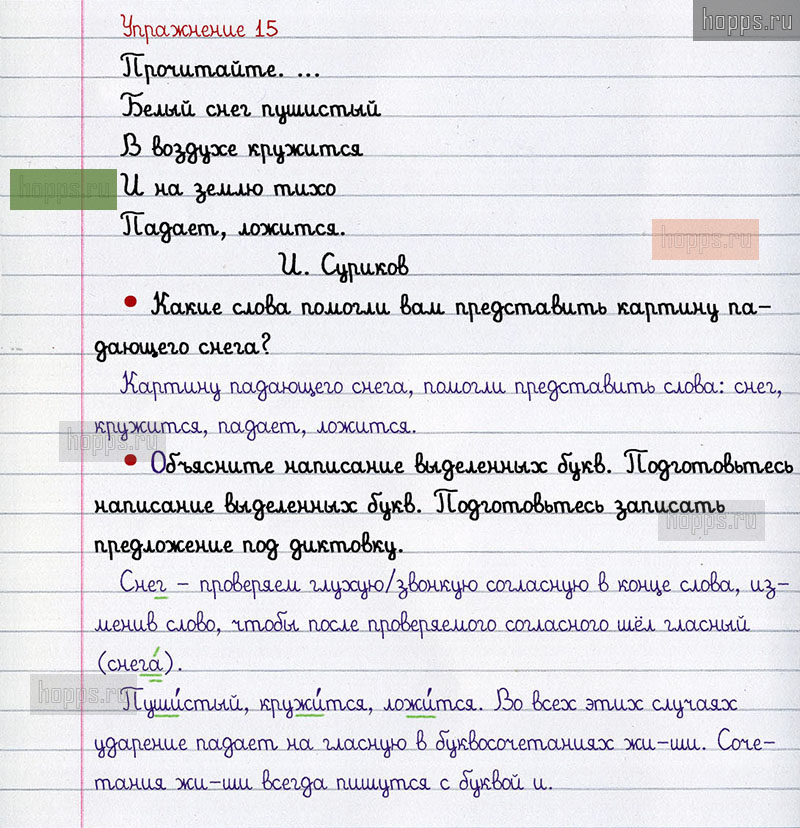 hopps.ru
Упражнение 15
Прочитайте. ...
Белый снег пушистый
В воздухе кружится
hopps.ru
И на землю тихо
Падает, ложится.
hopps.ru
И. Суриков
• Какие слова помогли вам представить картину па-
дающего снега?
Картину падающего снега, помогли представить слова: снег,
кружится, падает, ложится.
hopps.ru
• Объясните написание выделенных букв. Подготовьтесь
написание выделенных букв. Подготовьтесь записать
hopps.ru
предложение под диктовку.
Снег – проверяем глухую/звонкую согласную в конце слова, из-
менив слово, чтобы после проверяемого согласного шёл гласный
(снега́).
hopps.ru
Пуши́стый, кружи́тся, ложи́тся. Во всех этих случаях
ударение падает на гласную в буквосочетаниях жи-ши. Соче-
тания жи-ши всегда пишутся с буквой и.